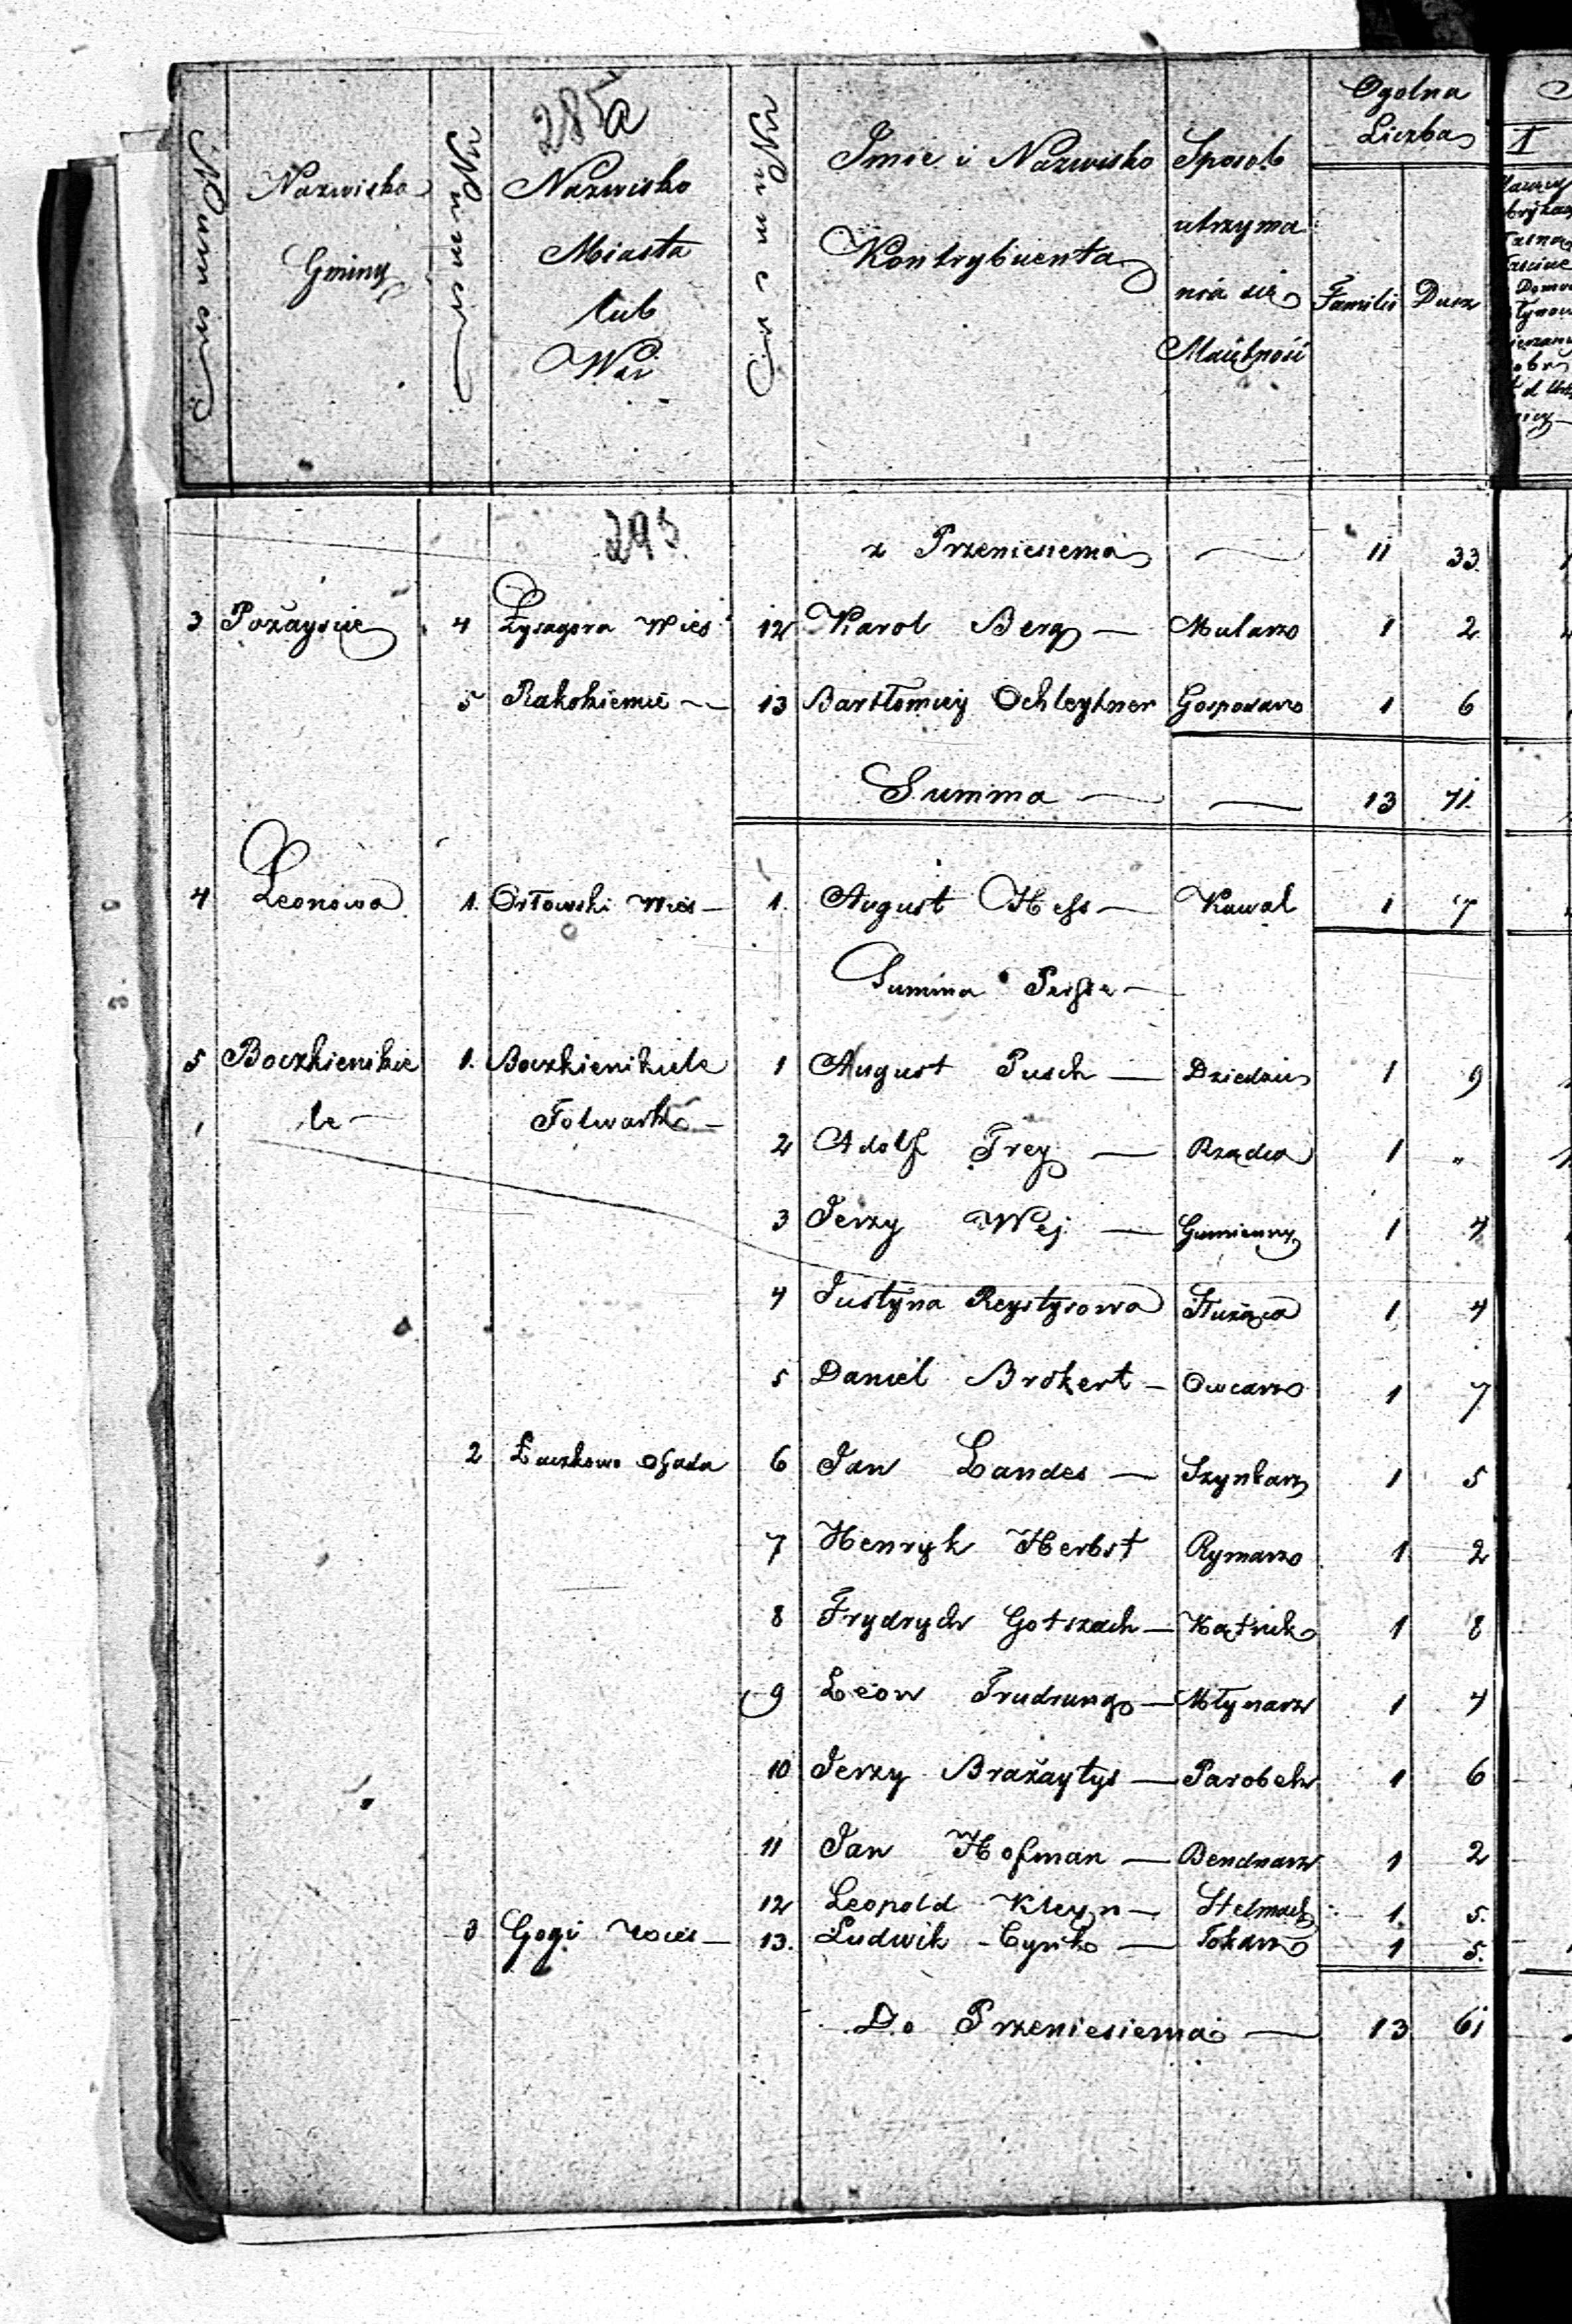 285a
Numer
Nazwisko Gminy
Numer
Nazwisko Miasta lub Wsi
Numer
Imie i Nazwisko Kontrybuenta
Sposob utrzyma nia się
Ogolna Liczba
Familii Dusz
I
295
z Przeniesienia — 11 33
3 Pożayście 4 Łysagora Wieś 12 Karol Berg — Mularz 1 2
5 13 Bartłomiey Gospodarz 1 6
Summa — — 13 41
4 Leonowa 1. Orłowski Wieś — 1. August Hess — Kowal 1 7
Summa Perse —
5 Boczkienikie 1. Boczkienikiele 1 August Pusch — Dziedzic 1 9
le — Folwark — 2 Adolf Frey — Rządca 1 "
3 Jerzy Wej — Gumienny 1 4
4 Justyna Reystysowa Służąca 1 4
5 Daniel Brokert — Owcarz 1 7
2 6 Jan Landes — Szynkarz 1 5
7 Henryk Herbst Rymarz 1 2
8 Frydrych Gotszach — Kątnik 1 8
9 Leon Trudrung — Młynarz 1 4
10 Jerzy Brażaytys — Parobek 1 6
11 Jan Hofman — Bendnarz 1 2
12 Leopold Kleyn — Stelmach 1 5.
3 Gogi Wieś — 13. Ludwik — Tokarz 1 5.
Do Przeniesienia — 13 61